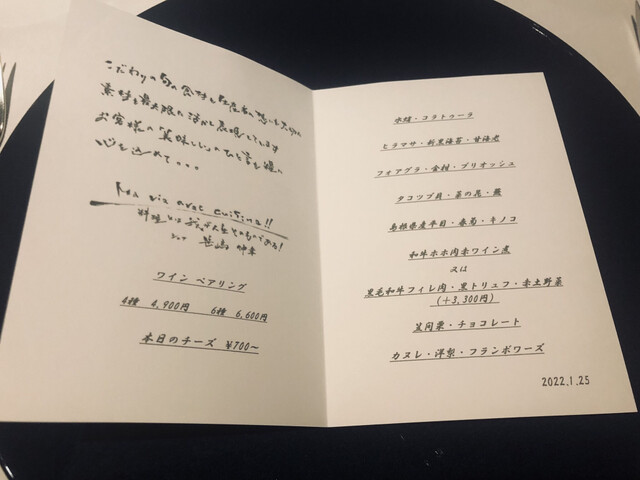 こだわりの旬の食材と生産者の想いを大切に
素材を最大限に活かし表現しています
お客様の「美味しい」のひと言を糧に
心を込めて...
Ma vie avec cuisine!!
料理とは
シェフ
ワイン ペアリング
4種 4,900円 6種 6,600円
本日のチーズ ¥700～
水蛸・コラトゥーラ
ヒラマサ・新黒海苔・甘海老
フォアグラ・金柑・ブリオッシュ
タコツブ貝・菜の花・蕪
島根県産平目・春菊・キノコ
和牛ホホ肉赤ワイン煮
又は
黒毛和牛フィレ肉・黒トリュフ・赤土野菜
(＋3,300円)
笠間栗・チョコレート
カヌレ・洋梨・フランボワーズ
2022.1.25